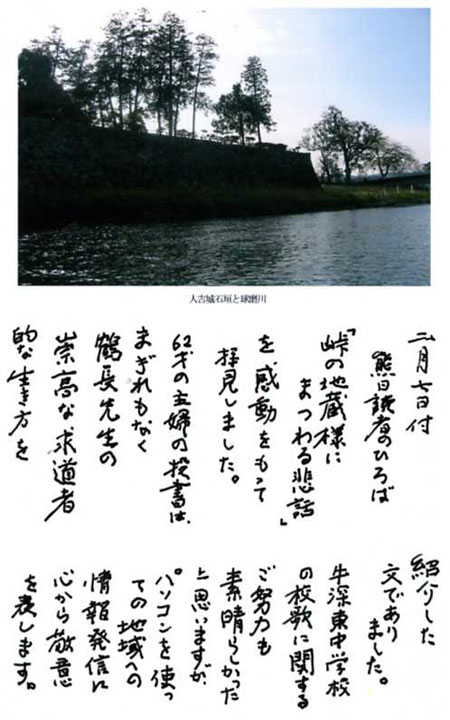 人吉城石垣と球磨川
二月七日付
熊日読者のひろば
「峠の地蔵様に
まつわる悲話」
を、感動をもって
拝見しました。
62才の主婦の投書は、
まぎれもなく
鶴長先生の
崇高な求道者
的な生き方を
紹介した
文であり
ました。
牛深東中学校
の校歌に関する
ご努力も
素晴らしかった
と思いますが、
パソコンを使っ
ての地域への
情報発信に
心から敬意
を表します。